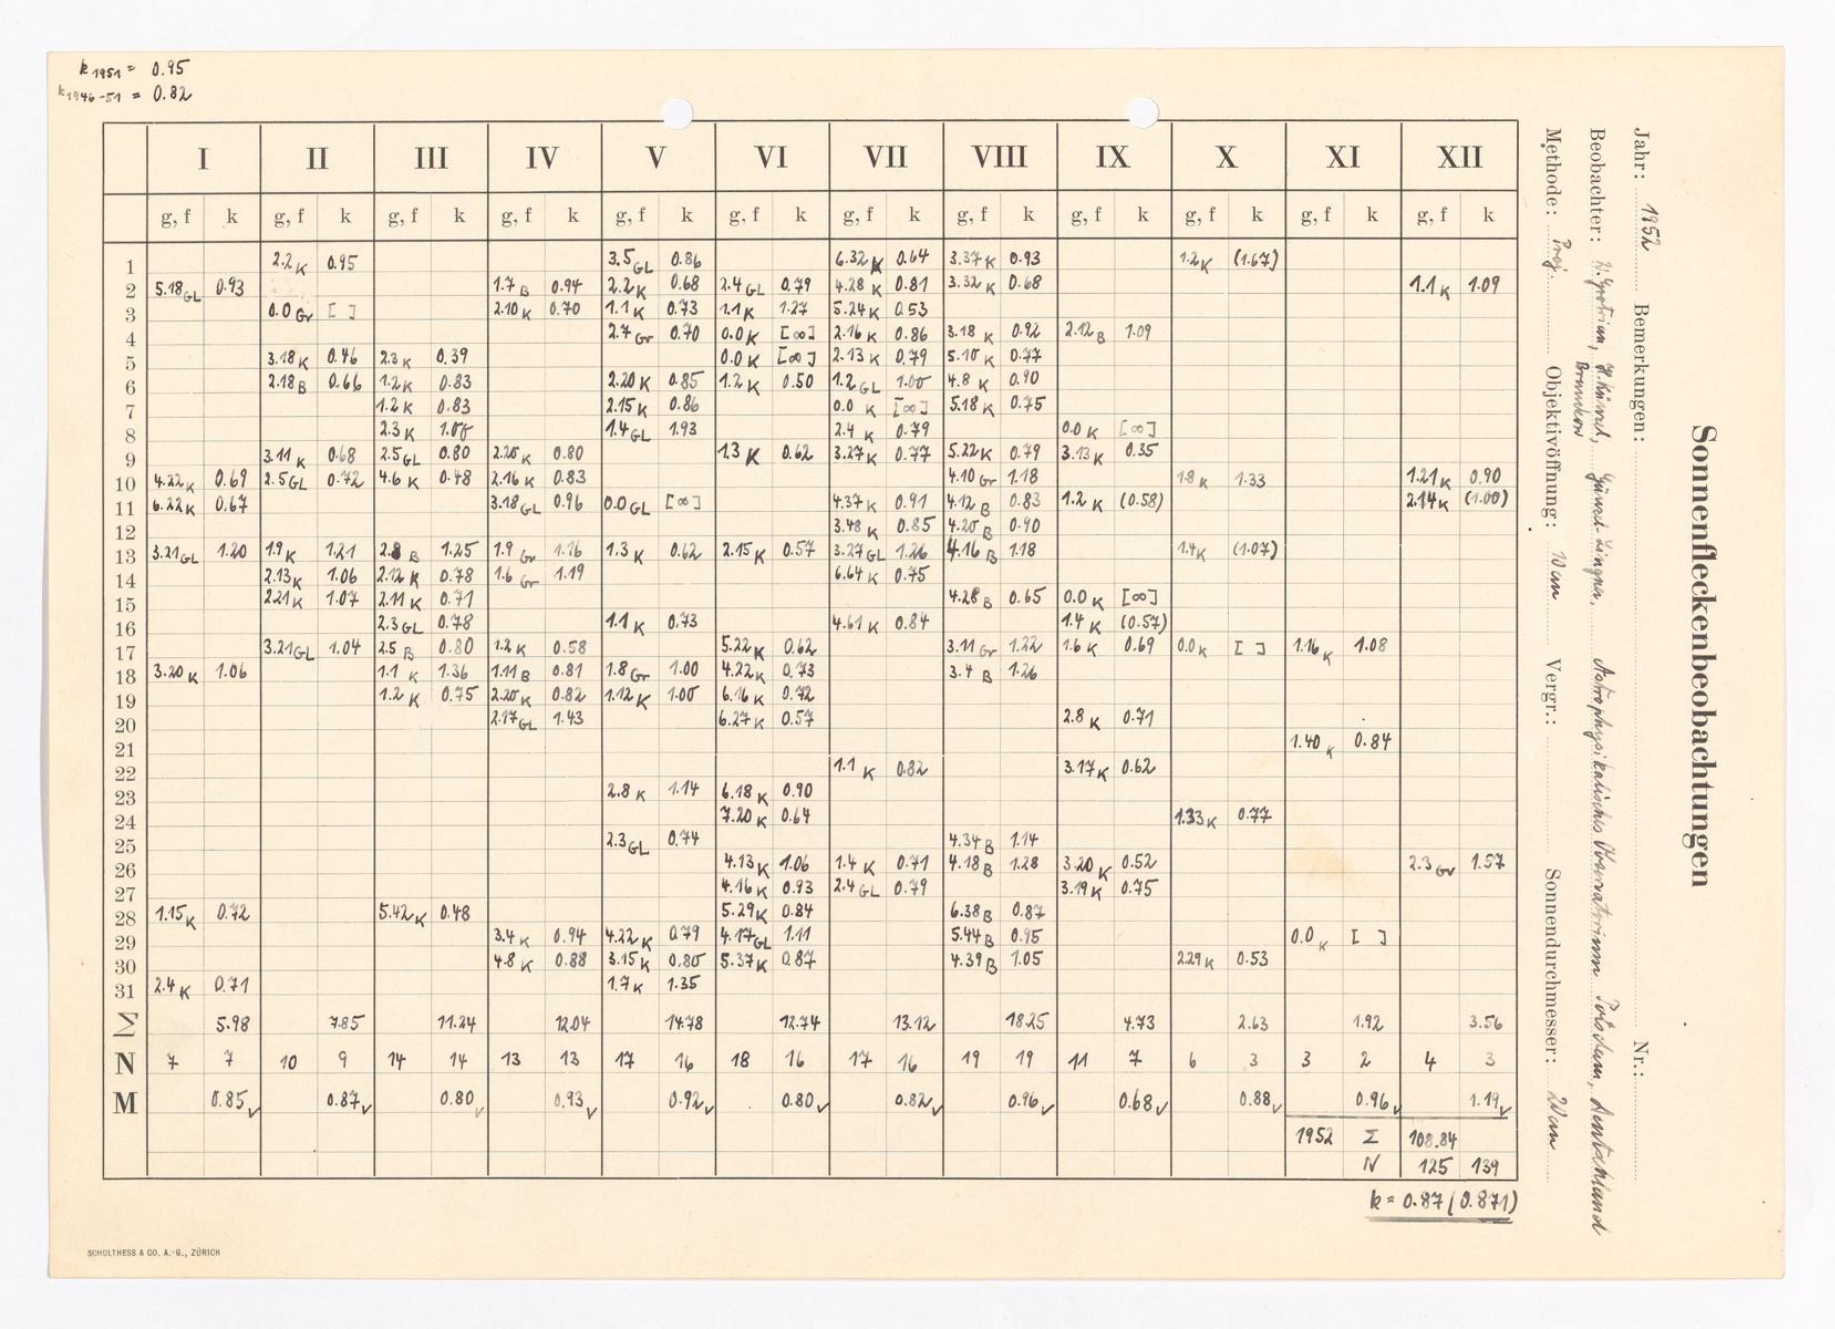 k 1951 = 0.95
k 1946-51 = 0.82
Sonnenfleckenbeobachtungen
Jahr: 1952 Bemerkungen: Nr.:
Beobachter: Astrophysikalisches Observatorium Potsdam, Deutschland
Methode: Proj. Objektivöffnung: Vergr.: Sonnendurchmesser:
I II III IV V VI VII VIII IX X XI XII
g, f k g, f k g, f k g, f k g, f k g, f k g, f k g, f k g, f k g, f k g, f k g, f k
1 2.2 K 0.95 3.5 GL 0.86 6.32 K 0.64 3.37 K 0.93 1.2 K (1.67)
2 5.18 GL 0.93 1.7 B 0.94 2.2 K 0.68 2.4 GL 0.79 4.28 K 0.81 3.32 K 0.68 1.1 K 1.09
3 0.0 Gr [ ] 2.10 K 0.70 1.1 K 0.73 1.1 K 1.27 5.24 K 0.53
4 2.7 Gr 0.70 0.0 K [∞] 2.16 K 0.86 3.18 K 0.92 2.12 B 1.09
5 3.18 K 0.46 2.3 K 0.39 0.0 K [∞] 2.13 K 0.79 5.10 K 0.77
6 2.18 B 0.66 1.2 K 0.83 2.20 K 0.85 1.2 K 0.50 1.2 GL 1.00 4.8 K 0.90
7 1.2 K 0.83 2.15 K 0.86 0.0 K [∞] 5.18 K 0.75
8 2.3 K 1.00 1.4 GL 1.93 2.4 K 0.79 0.0 K [∞]
9 3.11 K 0.68 2.5 GL 0.80 2.20 K 0.80 1.3 K 0.62 3.27 K 0.77 5.22 K 0.79 3.13 K 0.35
10 4.22 K 0.69 2.5 GL 0.72 4.6 K 0.48 2.16 K 0.83 4.10 Gr 1.18 1.8 K 1.33 1.21 K 0.90
11 6.22 K 0.67 3.18 GL 0.96 0.0 GL [∞] 4.37 K 0.91 4.12 B 0.83 1.2 K (0.58) 2.14 K (1.00)
12 3.48 K 0.85 4.20 B 0.90
13 3.21 GL 1.20 1.9 K 1.21 2.8 B 1.25 1.9 Gr 1.16 1.3 K 0.62 2.15 K 0.57 3.27 GL 1.26 4.16 B 1.18 1.4 K (1.07)
14 2.13 K 1.06 2.12 K 0.78 1.6 Gr 1.19 6.64 K 0.75
15 2.21 K 1.07 2.11 K 0.71 4.28 B 0.65 0.0 K [∞]
16 2.3 GL 0.78 1.1 K 0.73 4.61 K 0.84 1.4 K (0.57)
17 3.21 GL 1.04 2.5 B 0.80 1.2 K 0.58 5.22 K 0.62 3.11 Gr 1.22 1.6 K 0.69 0.0 K [ ] 1.16 K 1.08
18 3.20 K 1.06 1.1 K 1.36 1.11 B 0.81 1.8 Gr 1.00 4.22 K 0.73 3.4 B 1.26
19 1.2 K 0.75 2.20 K 0.82 1.12 K 1.00 6.16 K 0.72
20 2.17 GL 1.43 6.27 K 0.57 2.8 K 0.71
21 1.40 K 0.84
22 1.1 K 0.82 3.17 K 0.62
23 2.8 K 1.14 6.18 K 0.90
24 7.20 K 0.64 1.33 K 0.77
25 2.3 GL 0.74 4.34 B 1.14
26 4.13 K 1.06 1.4 K 0.71 4.18 B 1.28 3.20 K 0.52 2.3 Gr 1.57
27 4.16 K 0.93 2.4 GL 0.79 3.19 K 0.75
28 1.15 K 0.72 5.42 K 0.48 5.29 K 0.84 6.38 B 0.87
29 3.4 K 0.94 4.22 K 0.79 4.17 GL 1.11 5.44 B 0.95 0.0 K [ ]
30 4.8 K 0.88 3.15 K 0.80 5.37 K 0.87 4.39 B 1.05 2.29 K 0.53
31 2.4 K 0.71 1.7 K 1.35
Σ 5.98 7.85 11.24 12.04 14.78 12.74 13.12 18.25 4.73 2.63 1.92 3.56
N 7 7 10 9 14 14 13 13 17 16 18 16 17 16 19 19 11 7 6 3 3 2 4 3
M 0.85 0.87 0.80 0.93 0.92 0.80 0.82 0.96 0.68 0.88 0.96 1.19
1952 Σ 108.84
N 125 139
k = 0.87 (0.871)
SCHULTHESS & CO. A.-G., ZÜRICH